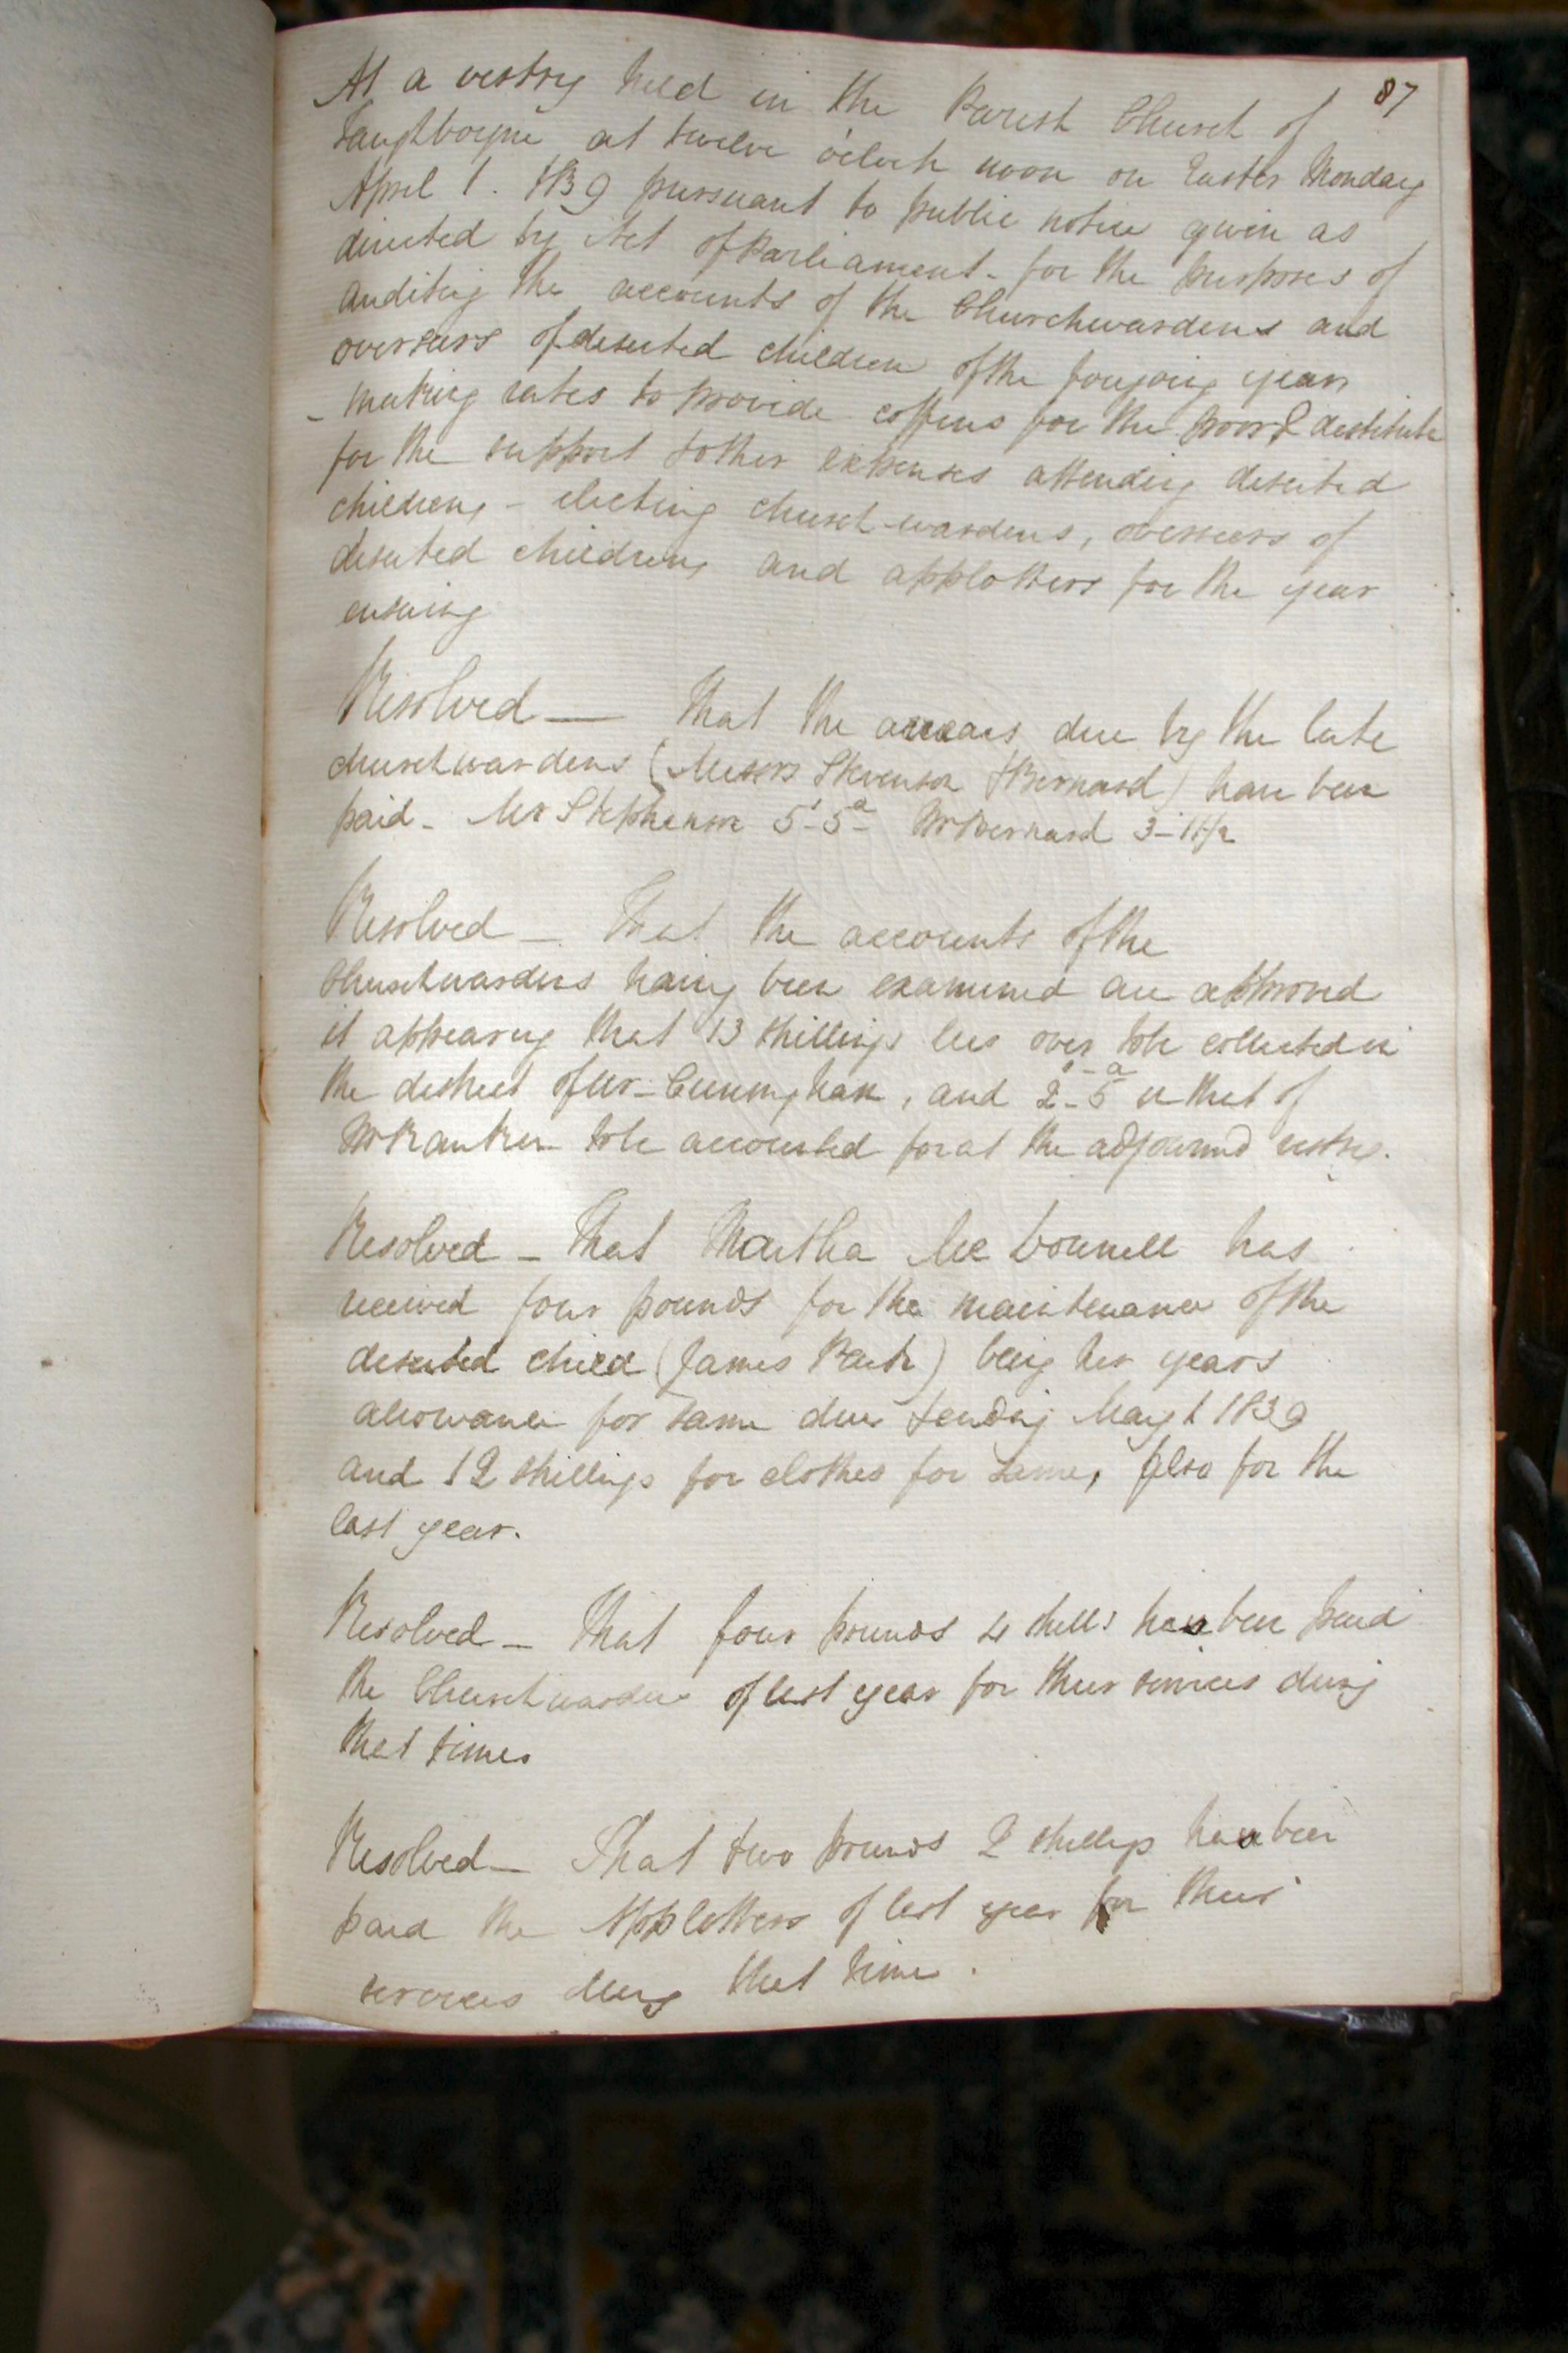 87
At a vestry held in the Parish Church of
Taughboyne at twelve o'clock noon on Easter Monday
April 1. 1839 pursuant to public notice given as
directed by Act of Parliament - for the purposes of
auditing the accounts of the Churchwardens and
overseers of deserted children of the foregoing year
- making rates to provide coffins for the poor & destitute
for the support & other expenses attending deserted
children, - electing church-wardens, overseers of
deserted children, and applotters for the year
ensuing
Resolved — That the arrears due by the late
churchwardens (Messrs Stevenson & Bernard) have been
paid - Mr Stephenson 5s-5d - Mr Bernard 3-11½
Resolved - That the accounts of the
Churchwardens having been examined are approved
it appearing that 13 shillings lies over to be collected in
the district of Mr Cunningham, and 2s-5d in that of
Mr Rankin to be accounted for at the adjourned vestry.
Resolved - That Martha Mc Connell has
received four pounds for the maintenance of the
deserted child (James Park) being her years
allowance for same due & ending May 1 1839
and 12 shillings for clothes for same, also for the
last year.
Resolved - That four pounds 4 shills has been paid
the Churchwardens of last year for their services during
that time.
Resolved - That two pounds 2 shillings has been
paid the Applotters of last year for their
services during that time.